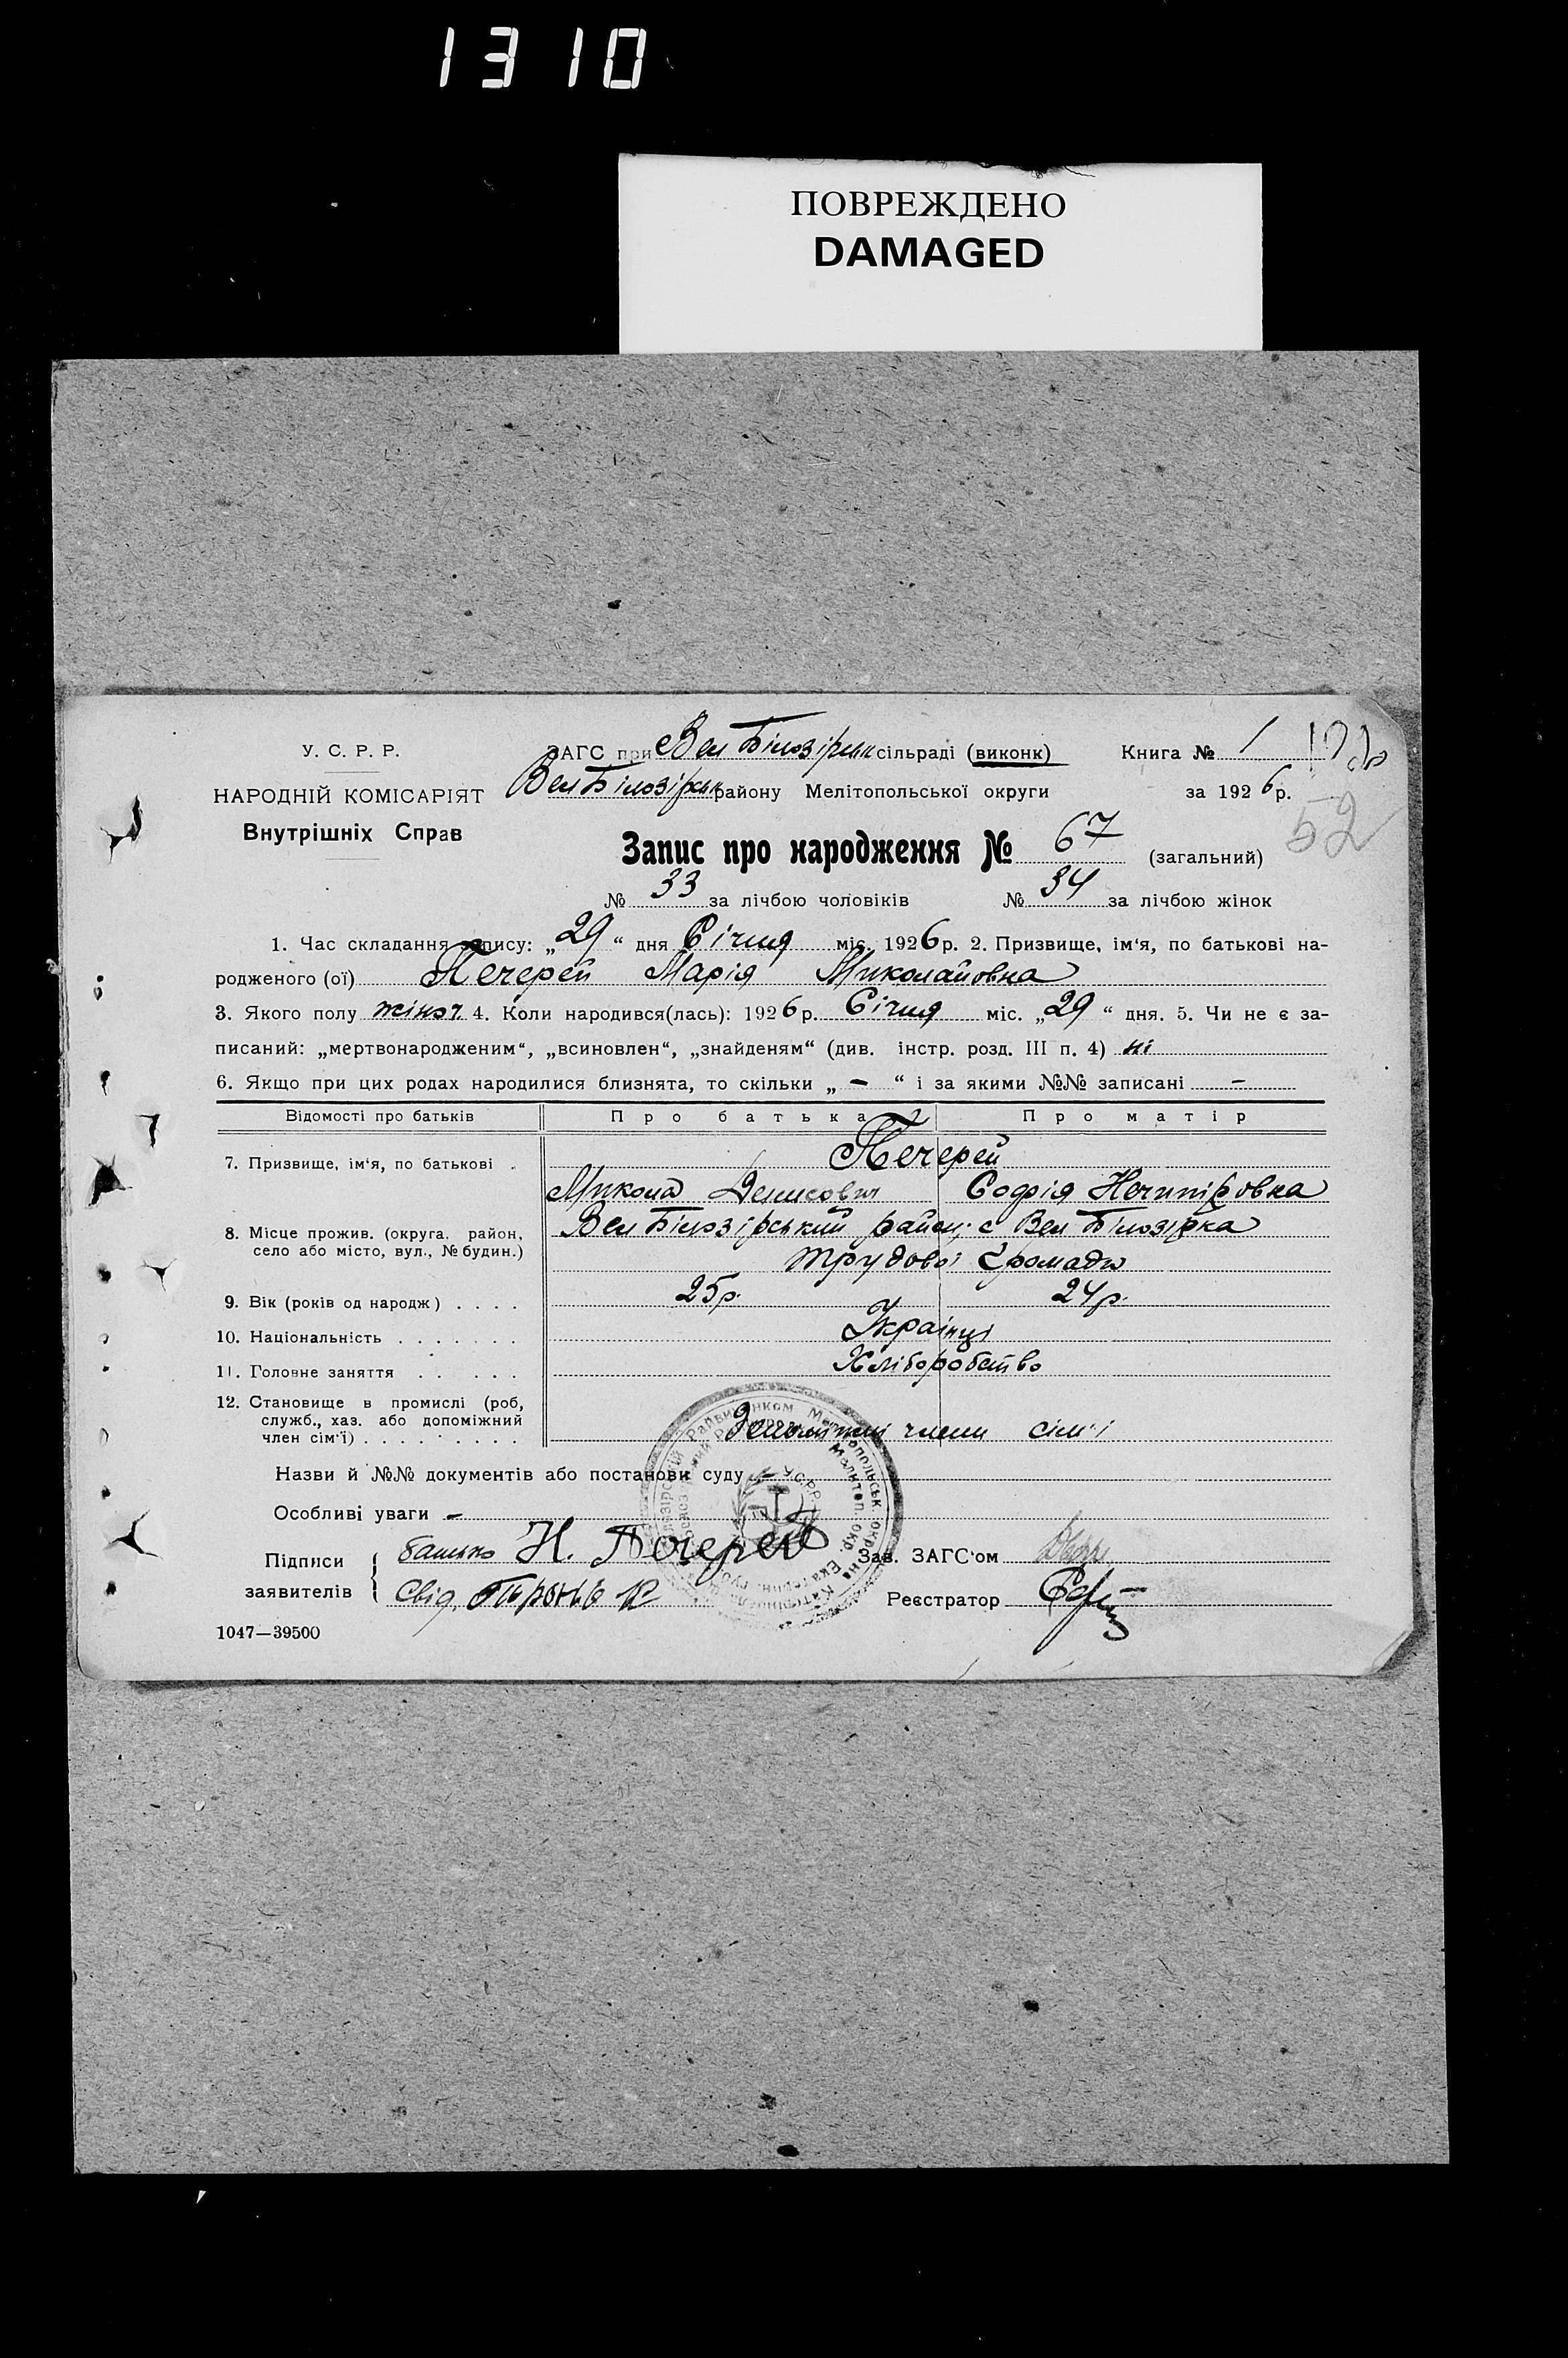 1310
ПОВРЕЖДЕНО
DAMAGED
У. С. Р. Р.
НАРОДНІЙ КОМІСАРІЯТ
Внутрішніх Справ
ЗАГС при Вел Білозірськ сільраді (виконк)
Книга № 1
Вел Білозірськ району Мелітопольської округи
за 1926 р.
52
Запис про народження № 67 (загальний)
№ 33 за лічбою чоловіків № 34 за лічбою жінок
1. Час складання запису: „29“ дня Січня міс. 1926 р. 2. Призвище, ім‘я, по батькові на-
родженого (ої) Печерей Марія Миколайовна
3. Якого полу жіноч. 4. Коли народився(лась): 1926 р. Січня міс. „29“ дня. 5. Чи не є за-
писаний: „мертвонародженим“, „всиновлен“, „знайденям“ (див. інстр. розд. III п. 4) ні
6. Якщо при цих родах народилися близнята, то скільки „ — “ і за якими №№ записані —
Відомості про батьків Про батька Про матір
7. Призвище, ім‘я, по батькові . Печерей
Микола Денисович Софія Нечипіровна
8. Місце прожив. (округа, район, село або місто, вул., № будин.) Вел Білозірський район; с Вел Білозірка
трудової громади
9. Вік (років од народж) . . . . 25р. 24р.
10. Національність . . . . . . . Українці
11. Головне заняття . . . . . Хліборобство
12. Становище в промислі (роб,
служб., хаз. або допоміжний
член сім‘ї) . . . . . . . . . члени сім'і
Назви й №№ документів або постанови суду —
Особливі уваги —
Підписи заявителів
батько Н. Печерей
Свід.
Зав. ЗАГС‘ом
Реєстратор
1047—39500